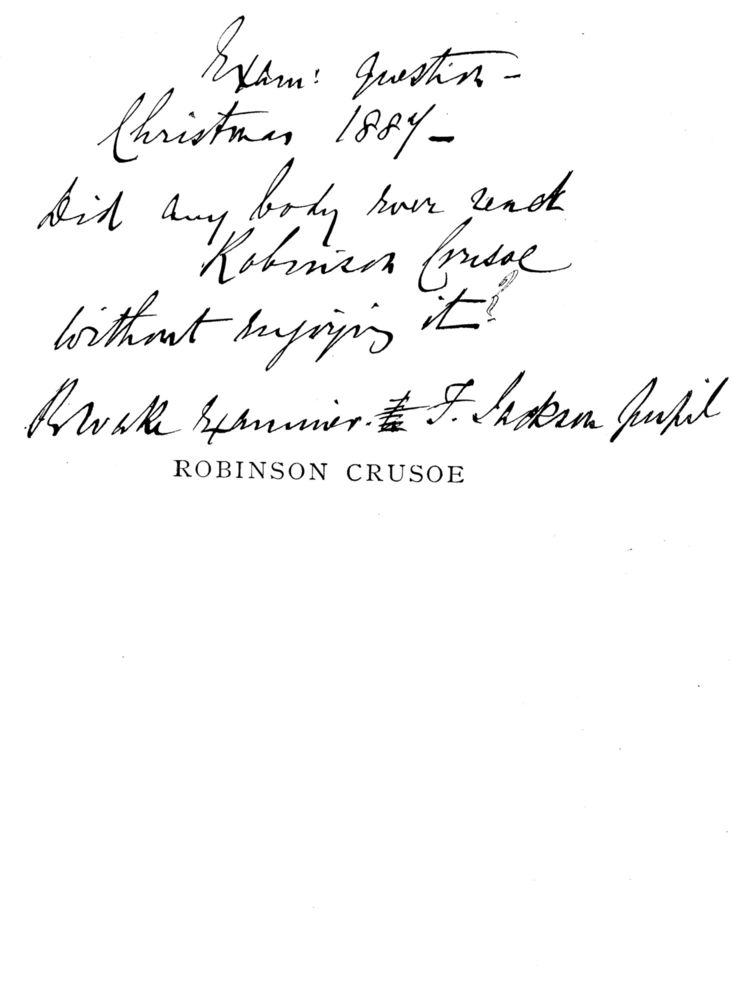 Exam: question –
Christmas 1887 –
Did any body ever read
Robinson Crusoe
without enjoying it?
Examiner. to F. Jackson pupil
ROBINSON CRUSOE